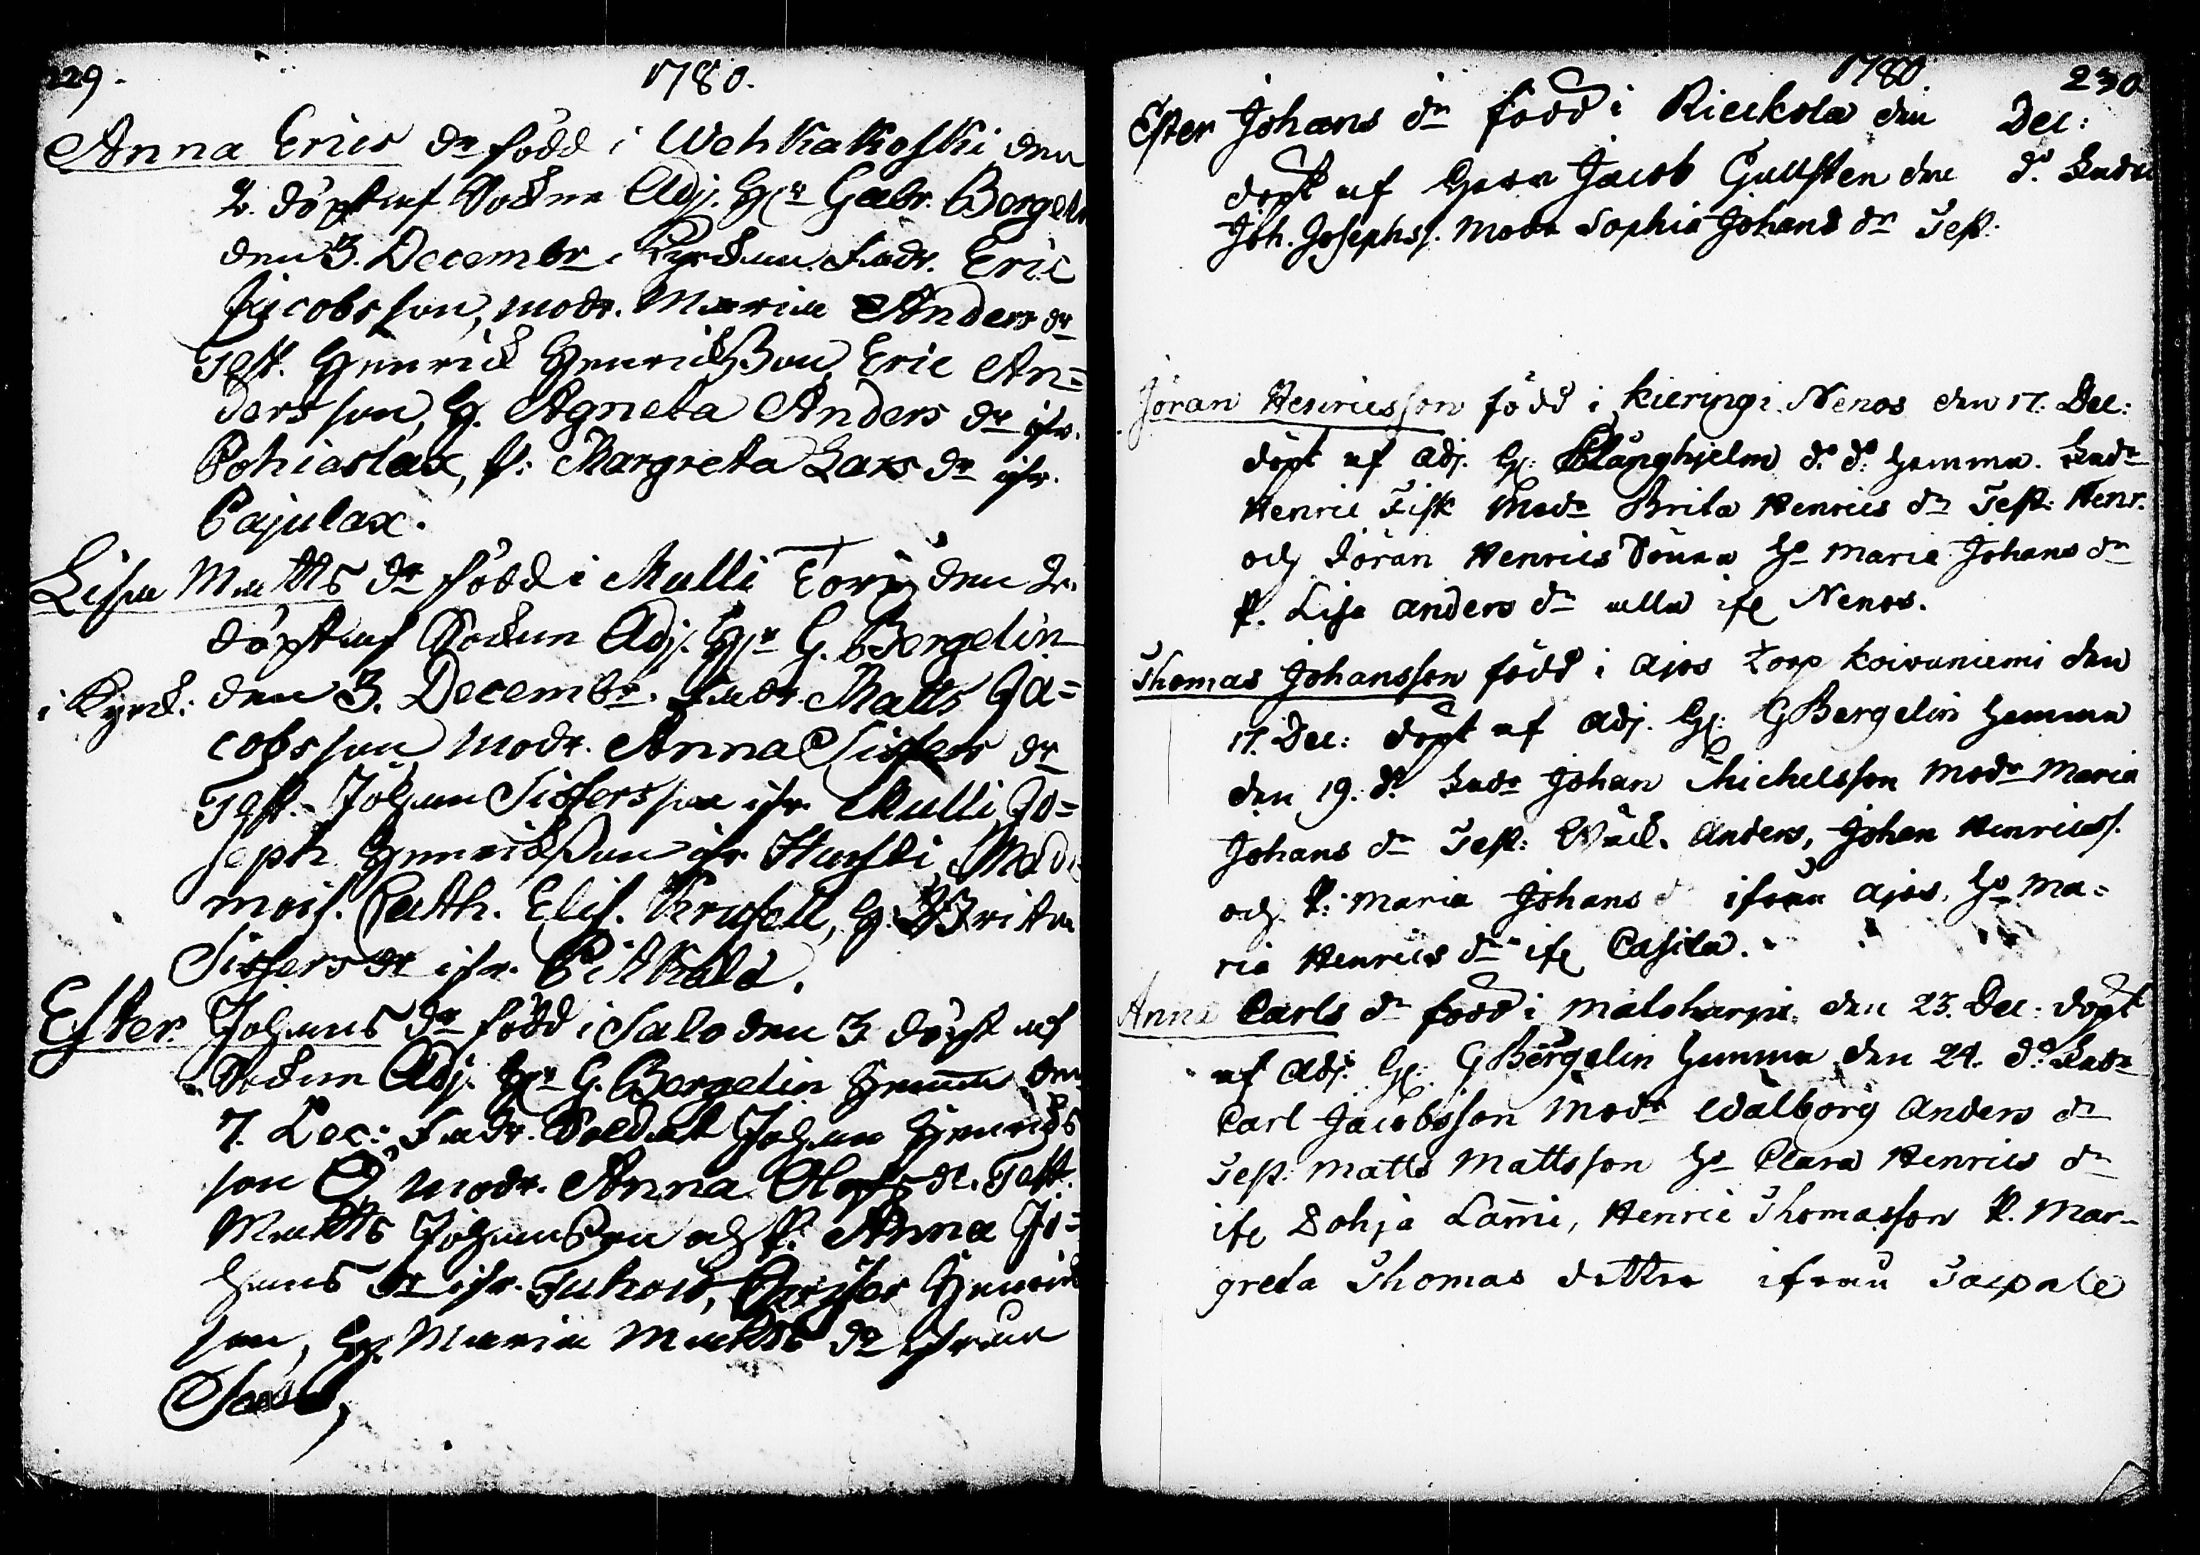 229.
1780.
Anna Erics dr född i Wehkakoski den
2. döpt af Sockne Adj. Hr Gabr. Bergelin
den 3. Decembr i Kyrckan. Fadr. Eric
Jacobsson, modr. Maria Anders dr
Test. Henrick Henrickson, Eric An=
dersson, H. Agneta Anders dr ifr.
Pohiaslax, P: Margreta Lars dr ifr.
Pajulax.
Lisa Matts dr född i Mulli Torp den 2.
döpt af Sockne Adj. Hr G. Bergelin
i Kyrck: den 3. Decembr. Fadr. Matts Ja=
cobsson, modr. Anna Sisfers dr
Test. Johan Sisfersson ifr. Mulli, Jo=
seph Henrickson ifr. Mad=
mois. Cath. Elis. Krusell, H. Brita
Sisfers dr ifr.
Ester Johans dr född i Salo den 3. döpt af
Sockne Adj. Hr G. Bergelin hemma den
7. Dec: Fadr. Soldat Johan Henricks
son Ö, modr. Anna Olofs dr. Test.
Matts Johansson och P. Anna Jo=
hans dr ifr. Tukois, Henrick
son, H. Maria Matts dr ifrån
Salo,
1780
230
Ester Johans dr född i Rieckola den Dec:
döpt af Herr Jacob Gullsten den do. Fadr
Joh. Josephss. Modr Sophia Johans dr Test.
Jöran Henricsson född i Kieringi Nenos den 17. Dec:
döpt af Adj. H: Långhjelm do. do. hemma. Fadr
Henric Fisk Modr Brita Henrics dr Test: Henr.
och Jöran Henrics Söner Ho Maria Johans dr
P. Lisa Anders dr alla ifr Nenos.
Thomas Johansson född i Ajos Torp Koivuniemi den
17. Dec: döpt af Adj. H: G Bergelin hemma
den 19. do. Fadr Johan Michelsson Modr Maria
Johans dr Test: Anders, Johan Henricss.
och P: Maria Johans d ifrån Ajos, Ho Ma=
ria Henrics dr ifr Casila.
Anna Carls dr född i Maloharju den 23. Dec: döpt
af Adj. H: G Bergelin hemma den 24. do. Fadr
Carl Jacobsson Modr Wålborg Anders dr
Test: Matts Mattsson Ho Clara Henrics dr
ifr Pohja Lammi, Henric Thomasson P. Mar-
greta Thomas dotter ifrån Saipale